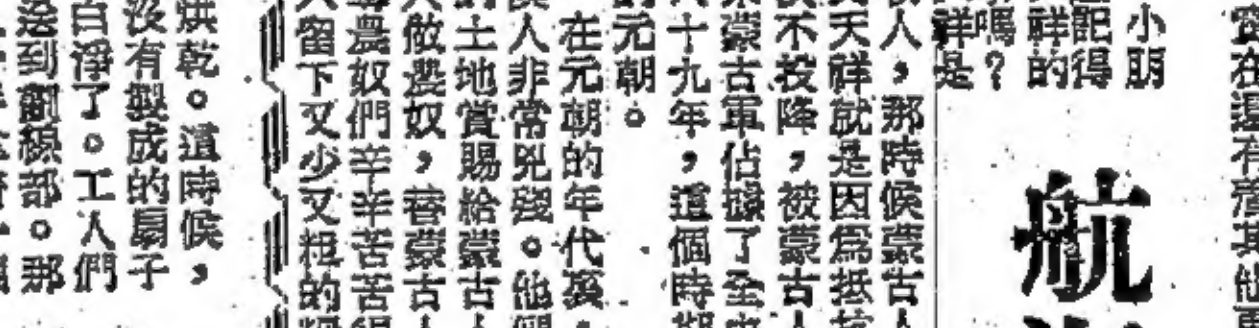 在還有其他
小朋
記得
祥的
嗎？
祥是
航
人，那時候蒙古人
天祥就是因爲抵抗
不投降，被蒙古人
蒙古軍佔據了全
十九年，這個時期
元朝。
在元朝的年代裏，
人非常兇殘。他們
土地賞賜給蒙古人
做農奴，替蒙古人
農奴們辛辛苦苦
留下又少又粗的
烘乾。這時候，
沒有製成的扇子
白淨了。工人們
送到線部。那